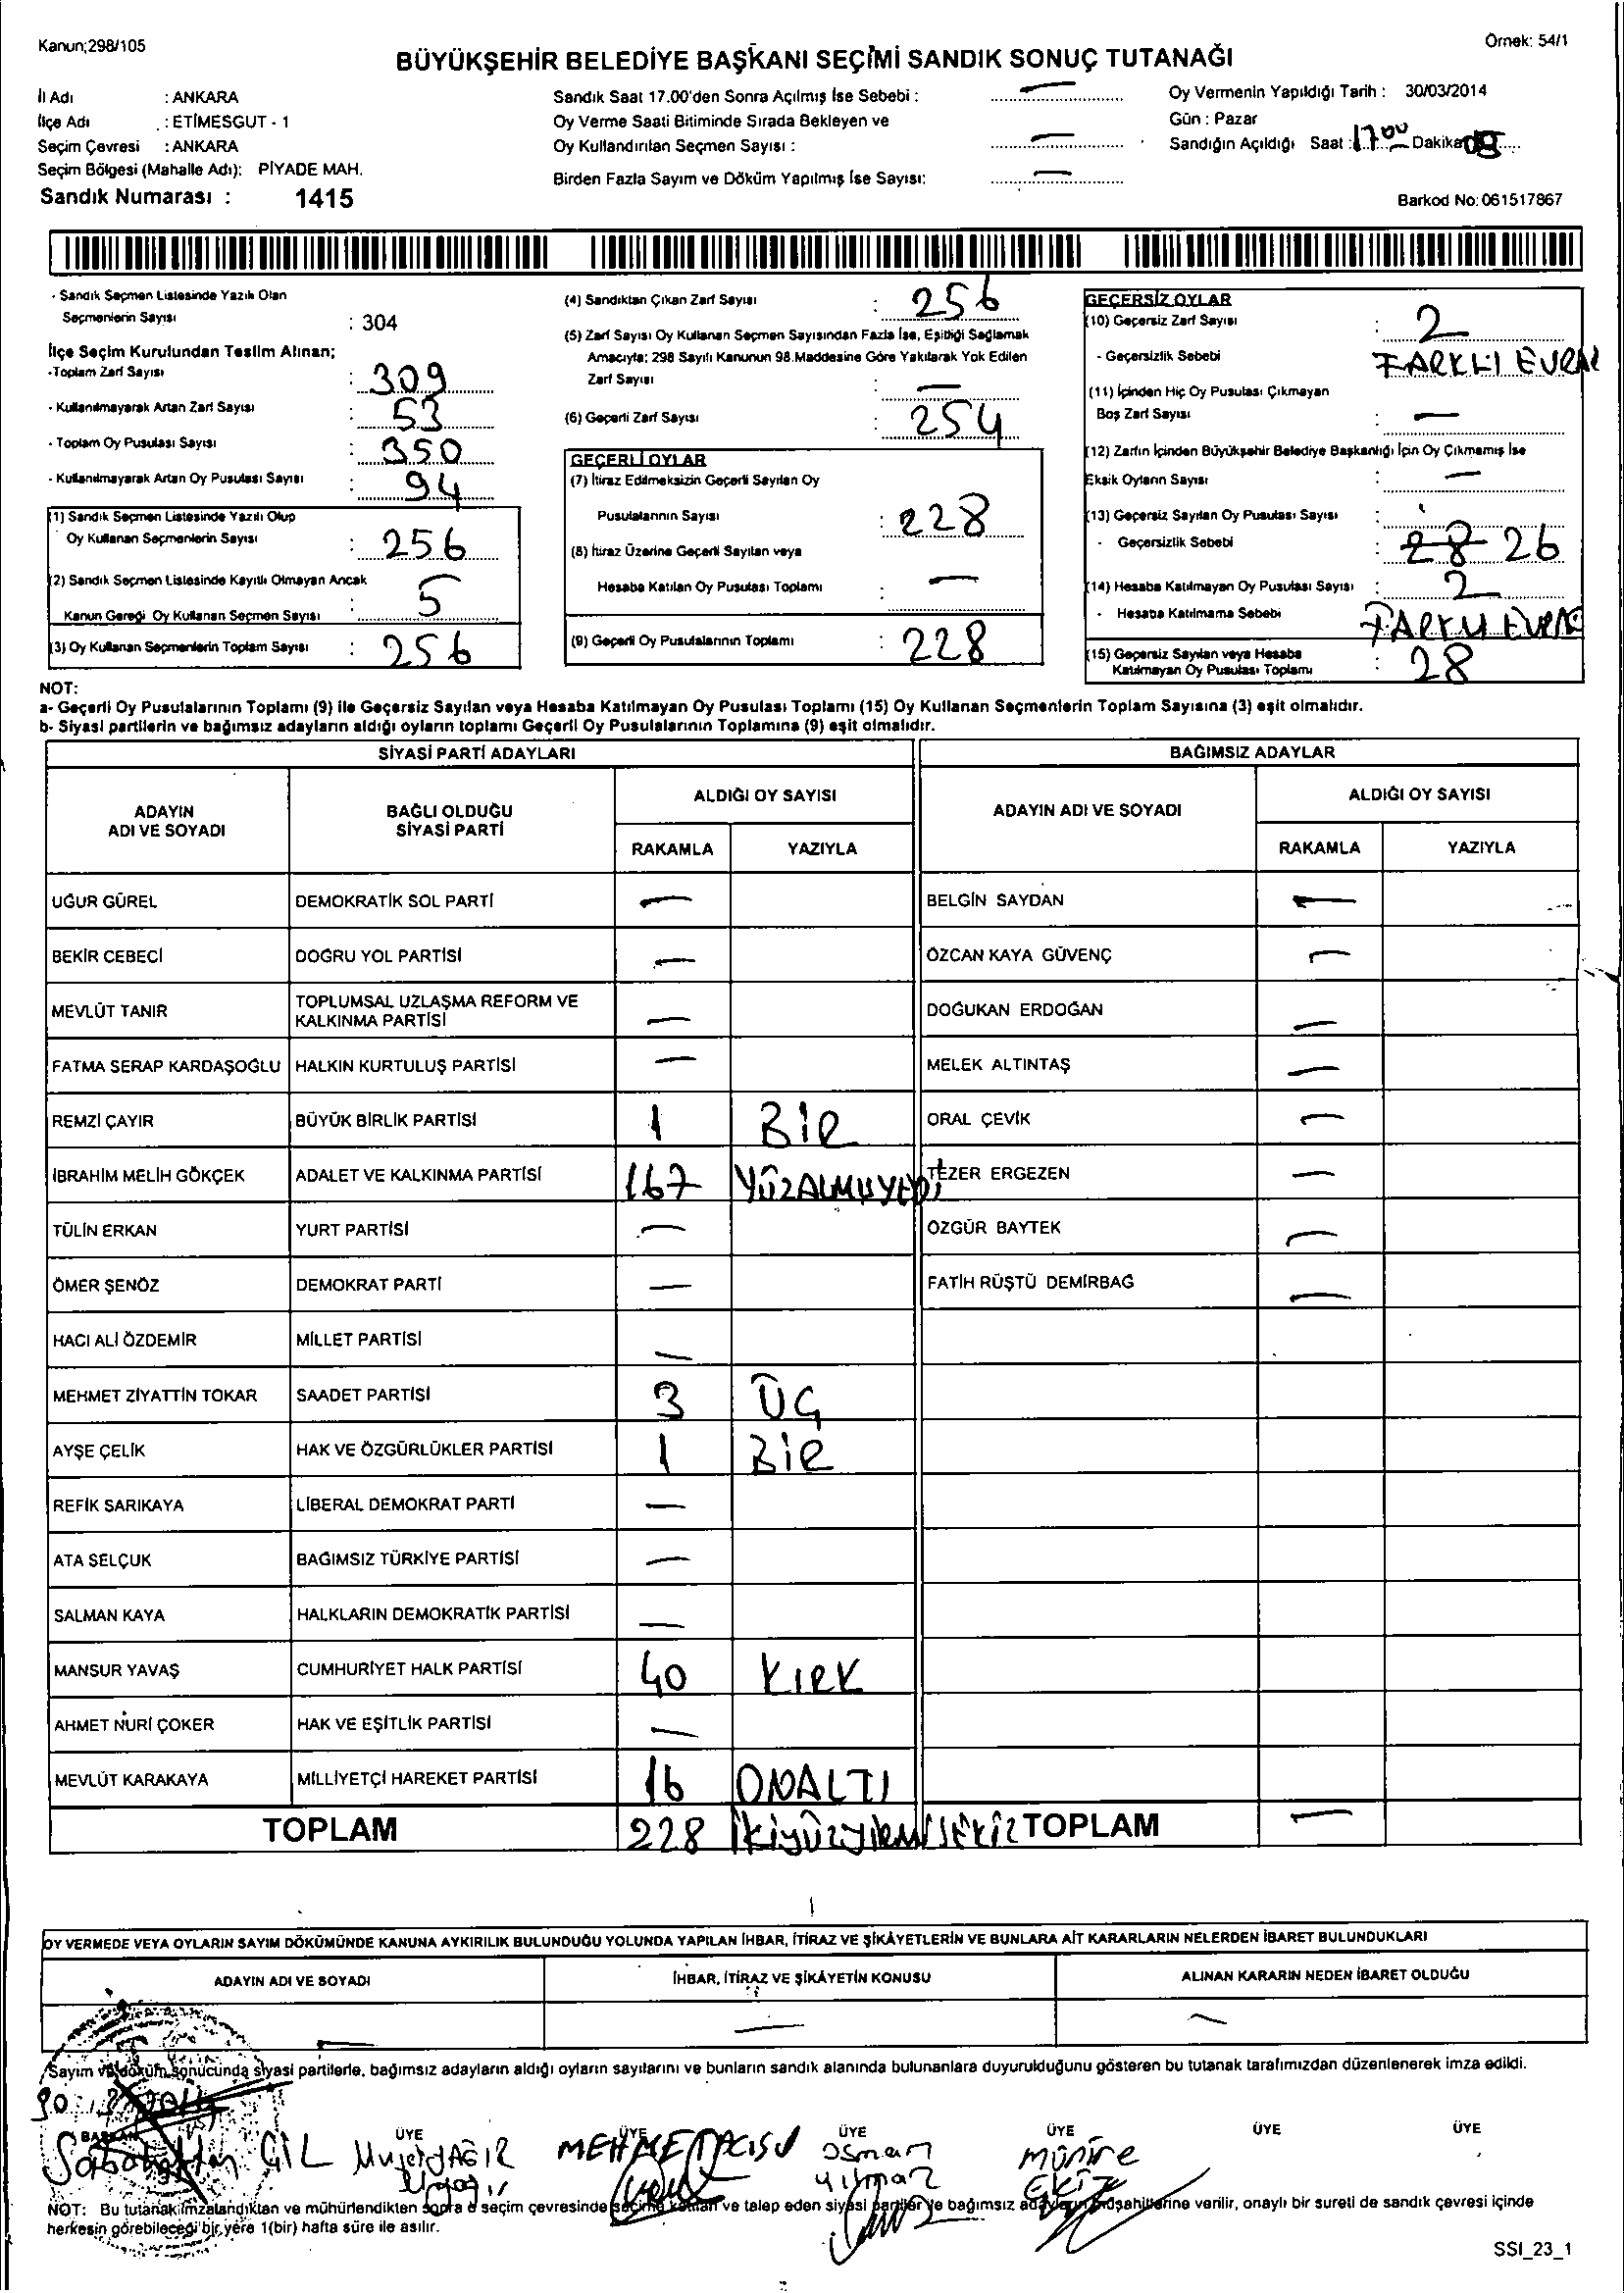 Kanun;298/105
Örnek: 54/1
BÜYÜKŞEHİR BELEDİYE BAŞKANI SEÇİMİ SANDIK SONUÇ TUTANAĞI
İl Adı : ANKARA
İlçe Adı : ETİMESGUT - 1
Seçim Çevresi : ANKARA
Seçim Bölgesi (Mahalle Adı): PİYADE MAH.
Sandık Numarası : 1415
Sandık Saat 17.00'den Sonra Açılmış İse Sebebi : —
Oy Verme Saati Bitiminde Sırada Bekleyen ve
Oy Kullandırılan Seçmen Sayısı : —
Birden Fazla Sayım ve Döküm Yapılmış İse Sayısı: —
Oy Vermenin Yapıldığı Tarih : 30/03/2014
Gün : Pazar
Sandığın Açıldığı Saat : 17 00 Dakika
Barkod No: 061517867
- Sandık Seçmen Listesinde Yazılı Olan
Seçmenlerin Sayısı : 304
İlçe Seçim Kurulundan Teslim Alınan;
-Toplam Zarf Sayısı : 309
- Kullanılmayarak Artan Zarf Sayısı : 53
- Toplam Oy Pusulası Sayısı : 350
- Kullanılmayarak Artan Oy Pusulası Sayısı : 94
(1) Sandık Seçmen Listesinde Yazılı Olup
Oy Kullanan Seçmenlerin Sayısı : 256
(2) Sandık Seçmen Listesinde Kayıtlı Olmayan Ancak
Kanun Gereği Oy Kullanan Seçmen Sayısı : 5
(3) Oy Kullanan Seçmenlerin Toplam Sayısı : 256
(4) Sandıktan Çıkan Zarf Sayısı : 256
(5) Zarf Sayısı Oy Kullanan Seçmen Sayısından Fazla İse, Eşitliği Sağlamak
Amacıyla; 298 Sayılı Kanunun 98.Maddesine Göre Yakılarak Yok Edilen
Zarf Sayısı : —
(6) Geçerli Zarf Sayısı : 254
GEÇERLİ OYLAR
(7) İtiraz Edilmeksizin Geçerli Sayılan Oy
Pusulalarının Sayısı : 228
(8) İtiraz Üzerine Geçerli Sayılan veya
Hesaba Katılan Oy Pusulası Toplamı : —
(9) Geçerli Oy Pusulalarının Toplamı : 228
GEÇERSİZ OYLAR
(10) Geçersiz Zarf Sayısı : 2
- Geçersizlik Sebebi FARKLI EVRAK
(11) İçinden Hiç Oy Pusulası Çıkmayan
Boş Zarf Sayısı : —
(12) Zarfın İçinden Büyükşehir Belediye Başkanlığı İçin Oy Çıkmamış İse
Eksik Oyların Sayısı : —
(13) Geçersiz Sayılan Oy Pusulası Sayısı :
- Geçersizlik Sebebi : 28 26
(14) Hesaba Katılmayan Oy Pusulası Sayısı : 2
- Hesaba Katılmama Sebebi FARKLI EVRAK
(15) Geçersiz Sayılan veya Hesaba
Katılmayan Oy Pusulası Toplamı : 28
NOT:
a- Geçerli Oy Pusulalarının Toplamı (9) ile Geçersiz Sayılan veya Hesaba Katılmayan Oy Pusulası Toplamı (15) Oy Kullanan Seçmenlerin Toplam Sayısına (3) eşit olmalıdır.
b- Siyasi partilerin ve bağımsız adayların aldığı oyların toplamı Geçerli Oy Pusulalarının Toplamına (9) eşit olmalıdır.
SİYASİ PARTİ ADAYLARI
BAĞIMSIZ ADAYLAR
ADAYIN ADI VE SOYADI
BAĞLI OLDUĞU SİYASİ PARTİ
ALDIĞI OY SAYISI
RAKAMLA YAZIYLA
ADAYIN ADI VE SOYADI
ALDIĞI OY SAYISI
RAKAMLA YAZIYLA
UĞUR GÜREL DEMOKRATİK SOL PARTİ — BELGİN SAYDAN —
BEKİR CEBECİ DOĞRU YOL PARTİSİ — ÖZCAN KAYA GÜVENÇ —
MEVLÜT TANIR TOPLUMSAL UZLAŞMA REFORM VE KALKINMA PARTİSİ — DOĞUKAN ERDOĞAN —
FATMA SERAP KARDAŞOĞLU HALKIN KURTULUŞ PARTİSİ — MELEK ALTINTAŞ —
REMZİ ÇAYIR BÜYÜK BİRLİK PARTİSİ 1 BİR ORAL ÇEVİK —
İBRAHİM MELİH GÖKÇEK ADALET VE KALKINMA PARTİSİ 167 YÜZALMIŞYEDİ TEZER ERGEZEN —
TÜLİN ERKAN YURT PARTİSİ — ÖZGÜR BAYTEK —
ÖMER ŞENÖZ DEMOKRAT PARTİ — FATİH RÜŞTÜ DEMİRBAĞ —
HACI ALİ ÖZDEMİR MİLLET PARTİSİ —
MEHMET ZİYATTİN TOKAR SAADET PARTİSİ 3 ÜÇ
AYŞE ÇELİK HAK VE ÖZGÜRLÜKLER PARTİSİ 1 BİR
REFİK SARIKAYA LİBERAL DEMOKRAT PARTİ —
ATA SELÇUK BAĞIMSIZ TÜRKİYE PARTİSİ —
SALMAN KAYA HALKLARIN DEMOKRATİK PARTİSİ —
MANSUR YAVAŞ CUMHURİYET HALK PARTİSİ 40 KIRK
AHMET NURİ ÇOKER HAK VE EŞİTLİK PARTİSİ —
MEVLÜT KARAKAYA MİLLİYETÇİ HAREKET PARTİSİ 16 ONALTI
TOPLAM 228 İkiyüzyirmisekiz TOPLAM —
OY VERMEDE VEYA OYLARIN SAYIM DÖKÜMÜNDE KANUNA AYKIRILIK BULUNDUĞU YOLUNDA YAPILAN İHBAR, İTİRAZ VE ŞİKÂYETLERİN VE BUNLARA AİT KARARLARIN NELERDEN İBARET BULUNDUKLARI
ADAYIN ADI VE SOYADI İHBAR, İTİRAZ VE ŞİKÂYETİN KONUSU ALINAN KARARIN NEDEN İBARET OLDUĞU
— — —
Sayım ve döküm sonucunda siyasi partilerle, bağımsız adayların aldığı oyların sayılarını ve bunların sandık alanında bulunanlara duyurulduğunu gösteren bu tutanak tarafımızdan düzenlenerek imza edildi.
30 3 2014
BAŞKAN ÜYE ÜYE ÜYE ÜYE ÜYE ÜYE
Sabahattin GİL MEHMET Osman Münire
Yılmaz
NOT: Bu tutanak imzalandıktan ve mühürlendikten sonra o seçim çevresinde seçime katılan ve talep eden siyasi partiler ve bağımsız adayların müşahitlerine verilir, onaylı bir sureti de sandık çevresi içinde
herkesin görebileceği bir yere 1(bir) hafta süre ile asılır.
SSI_23_1